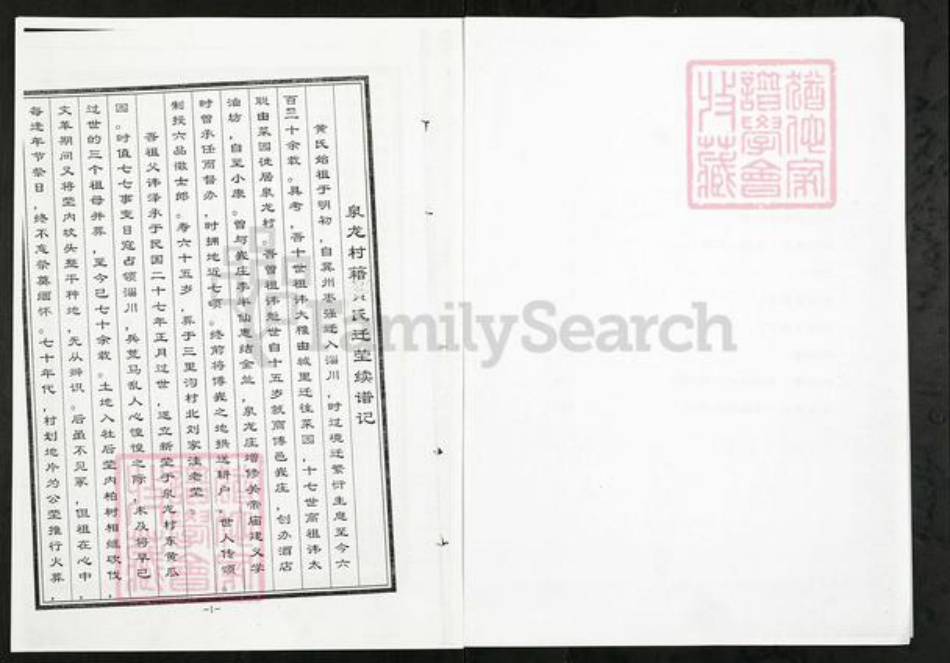 泉龙村籍黄氏迁莹续谱记
黄氏始祖于明初，自冀州枣强迁入淄川，时过境迁繁衍生息至今六
百二十余载。具考，吾十世祖讳大稚由城里迁往菜园，十七世高祖讳太
聪由菜园徙居泉龙村。吾曾祖讳魁世自十五岁就商博邑崮庄，创办酒店
油坊，自至小康。曾与崮庄李半仙惠结金兰，泉龙庄增修关帝庙建义学
时曾承任商督办，时拥地近七顷。终前将博崮之地拱送耕户，世人传颂
制授六品徽士郎。寿六十五岁，葬于三里沟村北刘家洼老莹。
吾祖父讳泽承于民国二十七年正月过世，迁立新莹于泉龙村东黄瓜
园。时值七七事变日寇占领淄川，兵荒马乱人心惶惶之际，未及将早已
过世的三个祖母并葬，至今已七十余载。土地入社后莹内柏树相继砍伐，
文革期间又将莹内坟头整平种地，无从辨识。后虽不见冢，但祖在心中，
每逢年节祭日，终不忘祭奠缅怀。七十年代，村划地片为公莹推行火葬，
-1-
FamilySearch
犹他家
谱学会
收藏